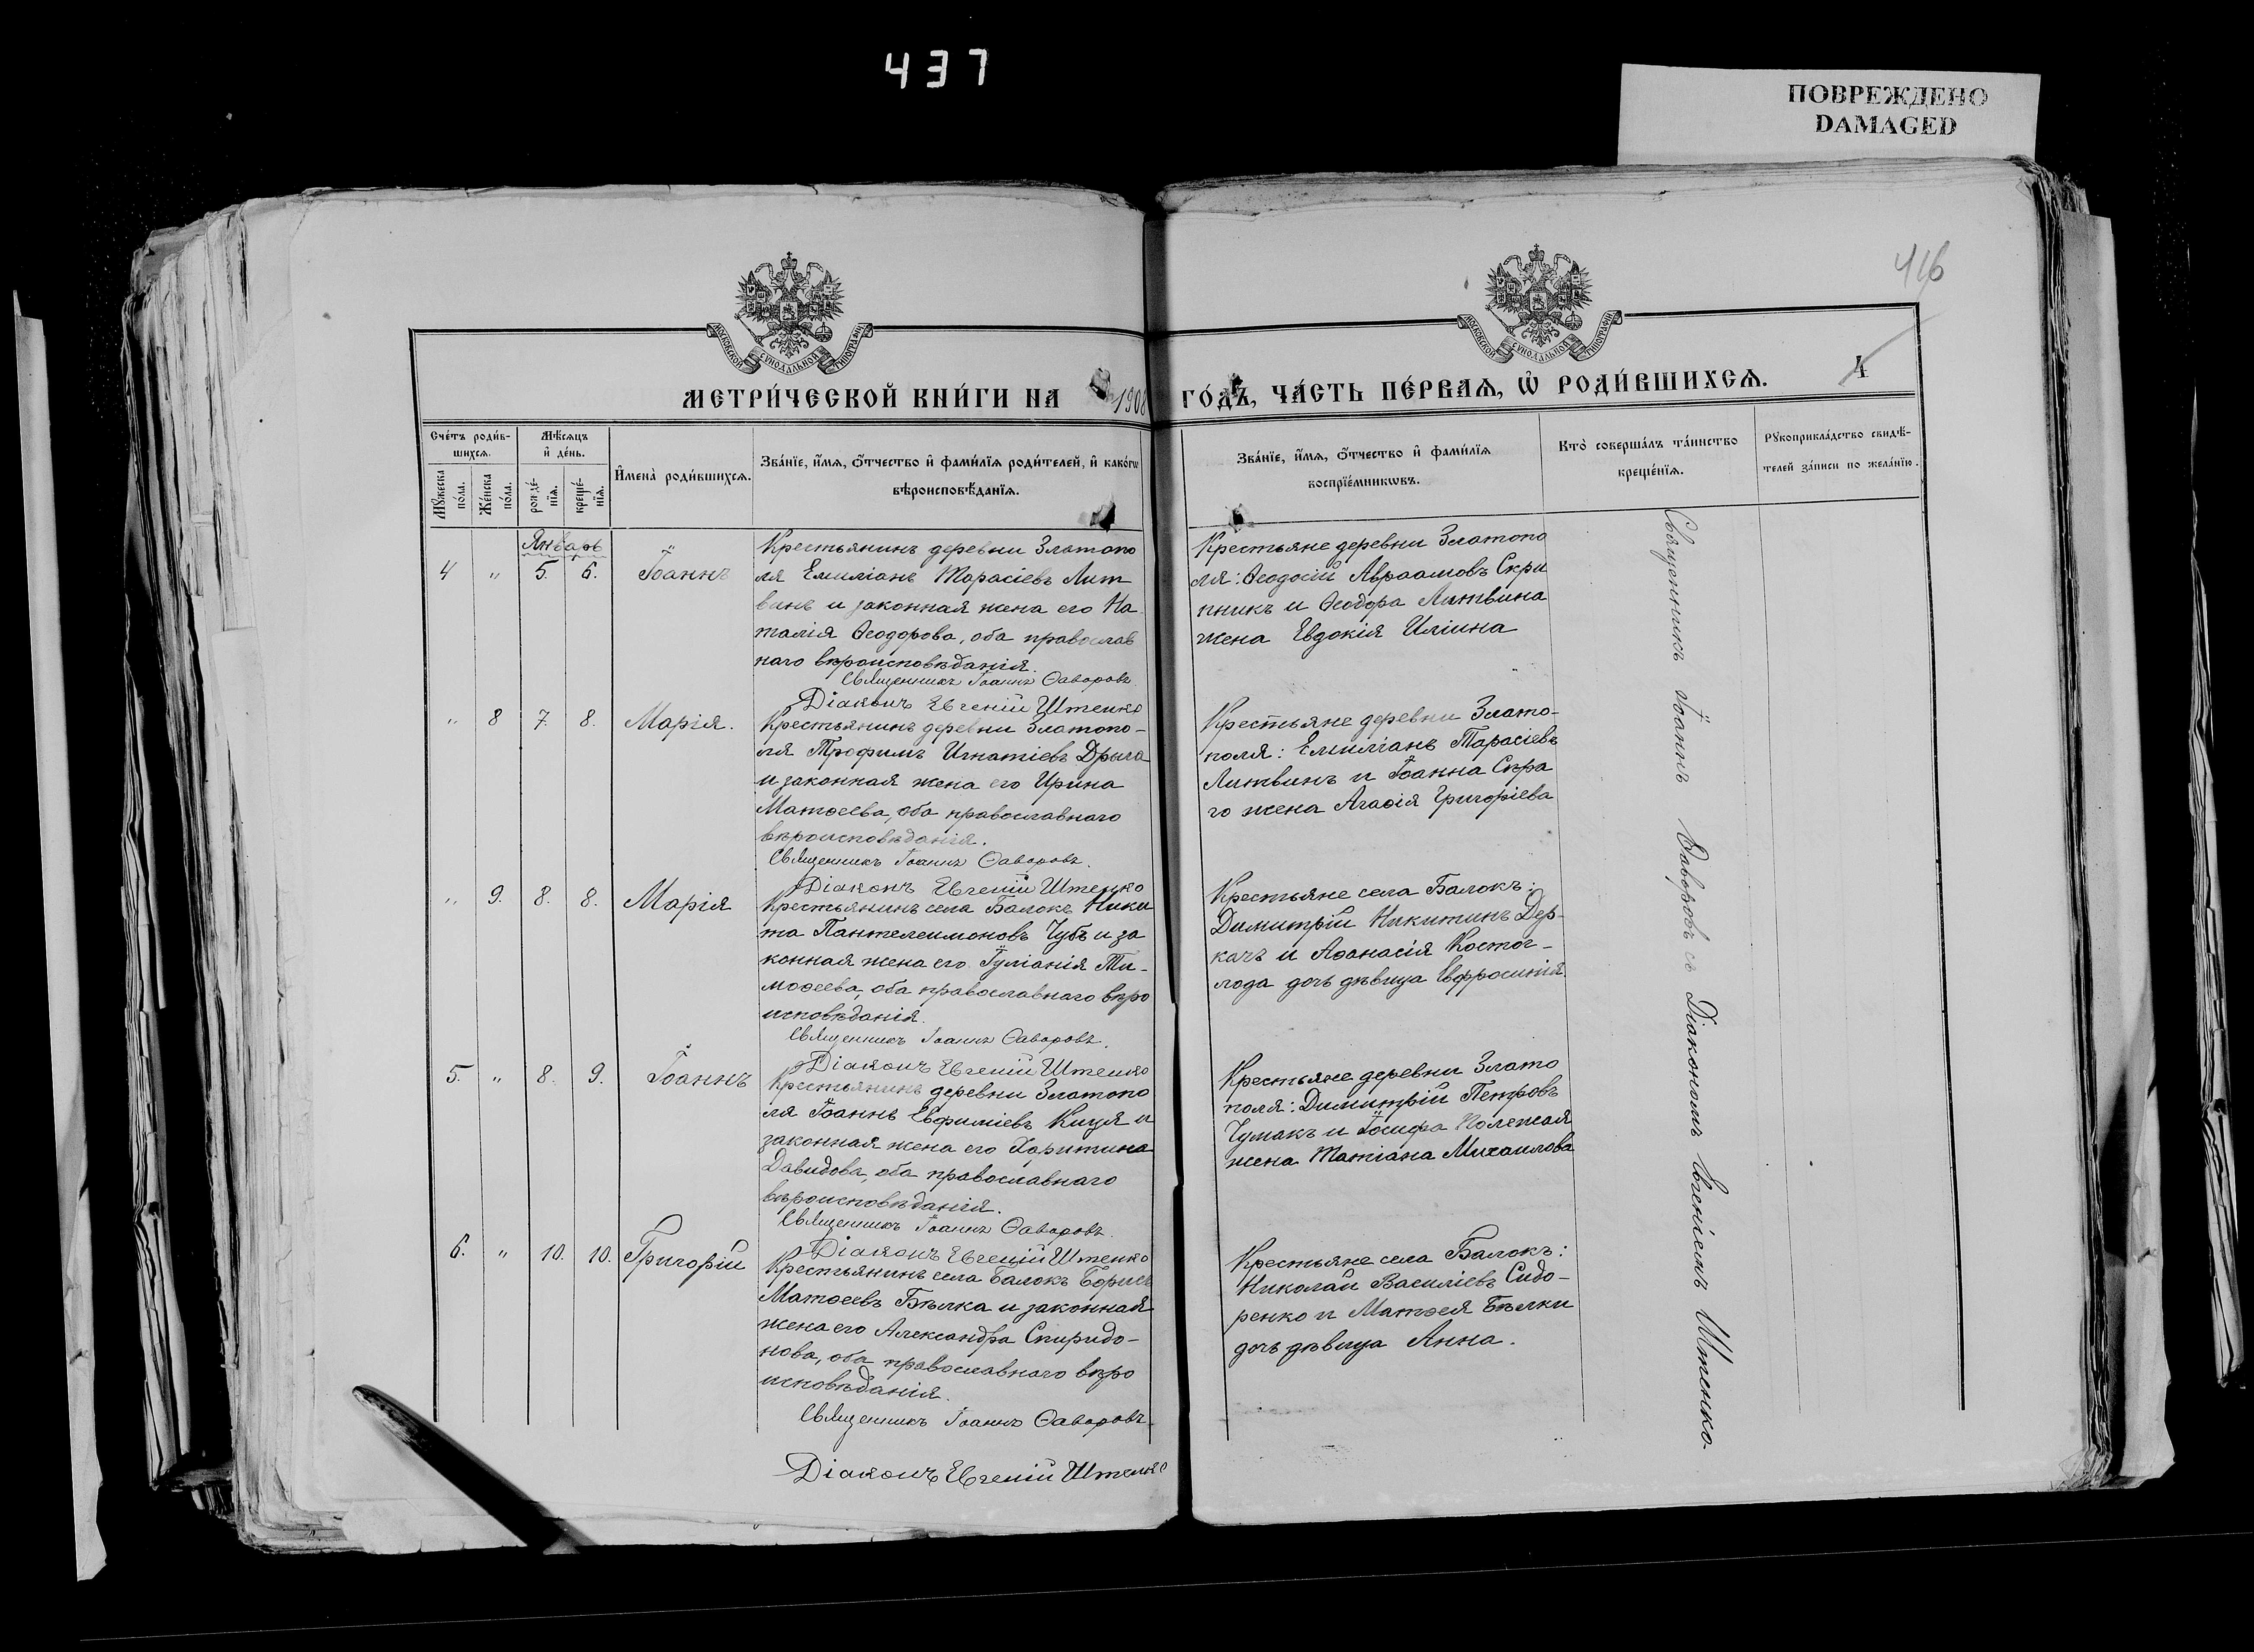 437
ПОВРЕЖДЕНО
DAMAGED
416
МОСКОВСКОЙ СУНОДАЛЬНОЙ ТИПОГРАФІИ
МОСКОВСКОЙ СУНОДАЛЬНОЙ ТИПОГРАФІИ
МЕТРИ́ЧЕСКОЙ КНИ́ГИ НА 1908 ГО́ДЪ, ЧА́СТЬ ПЕ́РВАѦ, Ѡ҆ РОДИ́ВШИХСѦ.
4
Сче́тъ роди́в-
шихсѧ.
Мꙋ́жеска
по́ла.
Же́нска
по́ла.
Мѣ́сѧцъ
и҆ де́нь.
рожде́-
нїѧ.
креще́-
нїѧ.
И҆мена̀ роди́вшихсѧ.
Зва́нїе, и҆́мѧ, ѻ҆́тчество и҆ фами́лїѧ роди́телей, и҆ како́гѡ
вѣроисповѣ́данїѧ.
Зва́нїе, и҆́мѧ, ѻ҆́тчество и҆ фами́лїѧ
воспрїе́мникѡвъ.
Кто̀ соверша́лъ та́инство
креще́нїѧ.
Рꙋкоприкла́дство свидѣ́-
телей за́писи по жела́нїю.
Январь
4 " 5. 6. Іоаннъ
Крестьянинъ деревни Златопо
ля Емиліанъ Тарасіевъ Лит
винъ и законная жена его На
талія Ѳеодорова, оба православ
наго вѣроисповѣданія.
Священникъ Іоаннъ Ѳаворовъ
Діаконъ Евгеній Штенко
Крестьяне деревни Златопо
ля: Ѳеодосій Авраамовъ Скри
пникъ и Ѳеодора Литвина
жена Евдокія Иліина
" 8 7. 8. Марія.
Крестьянинъ деревни Златопо-
ля Трофимъ Игнатіевъ Дрыга
и законная жена его Ирина
Матѳеева, оба православнаго
вѣроисповѣданія.
Священникъ Іоаннъ Ѳаворовъ.
Діаконъ Евгеній Штенко
Крестьяне деревни Злато-
поля: Емиліанъ Тарасіевъ
Литвинъ и Іоанна Сѣра
го жена Агаѳія Григоріева
" 9. 8. 8. Марія
Крестьянинъ села Балокъ Ники
та Пантелеимоновъ Чубъ и за
конная жена его Іуліанія Ти-
моѳеева, оба православнаго вѣро
исповѣданія.
Священникъ Іоаннъ Ѳаворовъ.
Діаконъ Евгеній Штенко
Крестьяне села Балокъ:
Димитрій Никитинъ Дер-
качъ и Аѳанасія Костог-
лода дочь дѣвица Евфросинія.
5. " 8. 9. Іоаннъ
Крестьянинъ деревни Златопо
ля Іоаннъ Евфиміевъ Куця и
законная жена его Харитина
Давидова, оба православнаго
вѣроисповѣданія.
Священникъ Іоаннъ Ѳаворовъ.
Діаконъ Евгеній Штенко
Крестьяне деревни Злато
поля: Димитрій Петровъ
Чумакъ и Іосифа Полежая
жена Татіана Михаилова
6. " 10. 10. Григорій
Крестьянинъ села Балокъ Борисъ
Матѳеевъ Бѣлка и законная
жена его Александра Спиридо-
нова, оба православнаго вѣро
исповѣданія.
Священникъ Іоаннъ Ѳаворовъ.
Діаконъ Евгеній Штенко
Крестьяне села Балокъ:
Николай Василіевъ Сидо-
ренко и Матѳея Бѣлки
дочь дѣвица Анна.
Священникъ Іоаннъ Ѳаворовъ съ Діакономъ Евгеніемъ Штенко